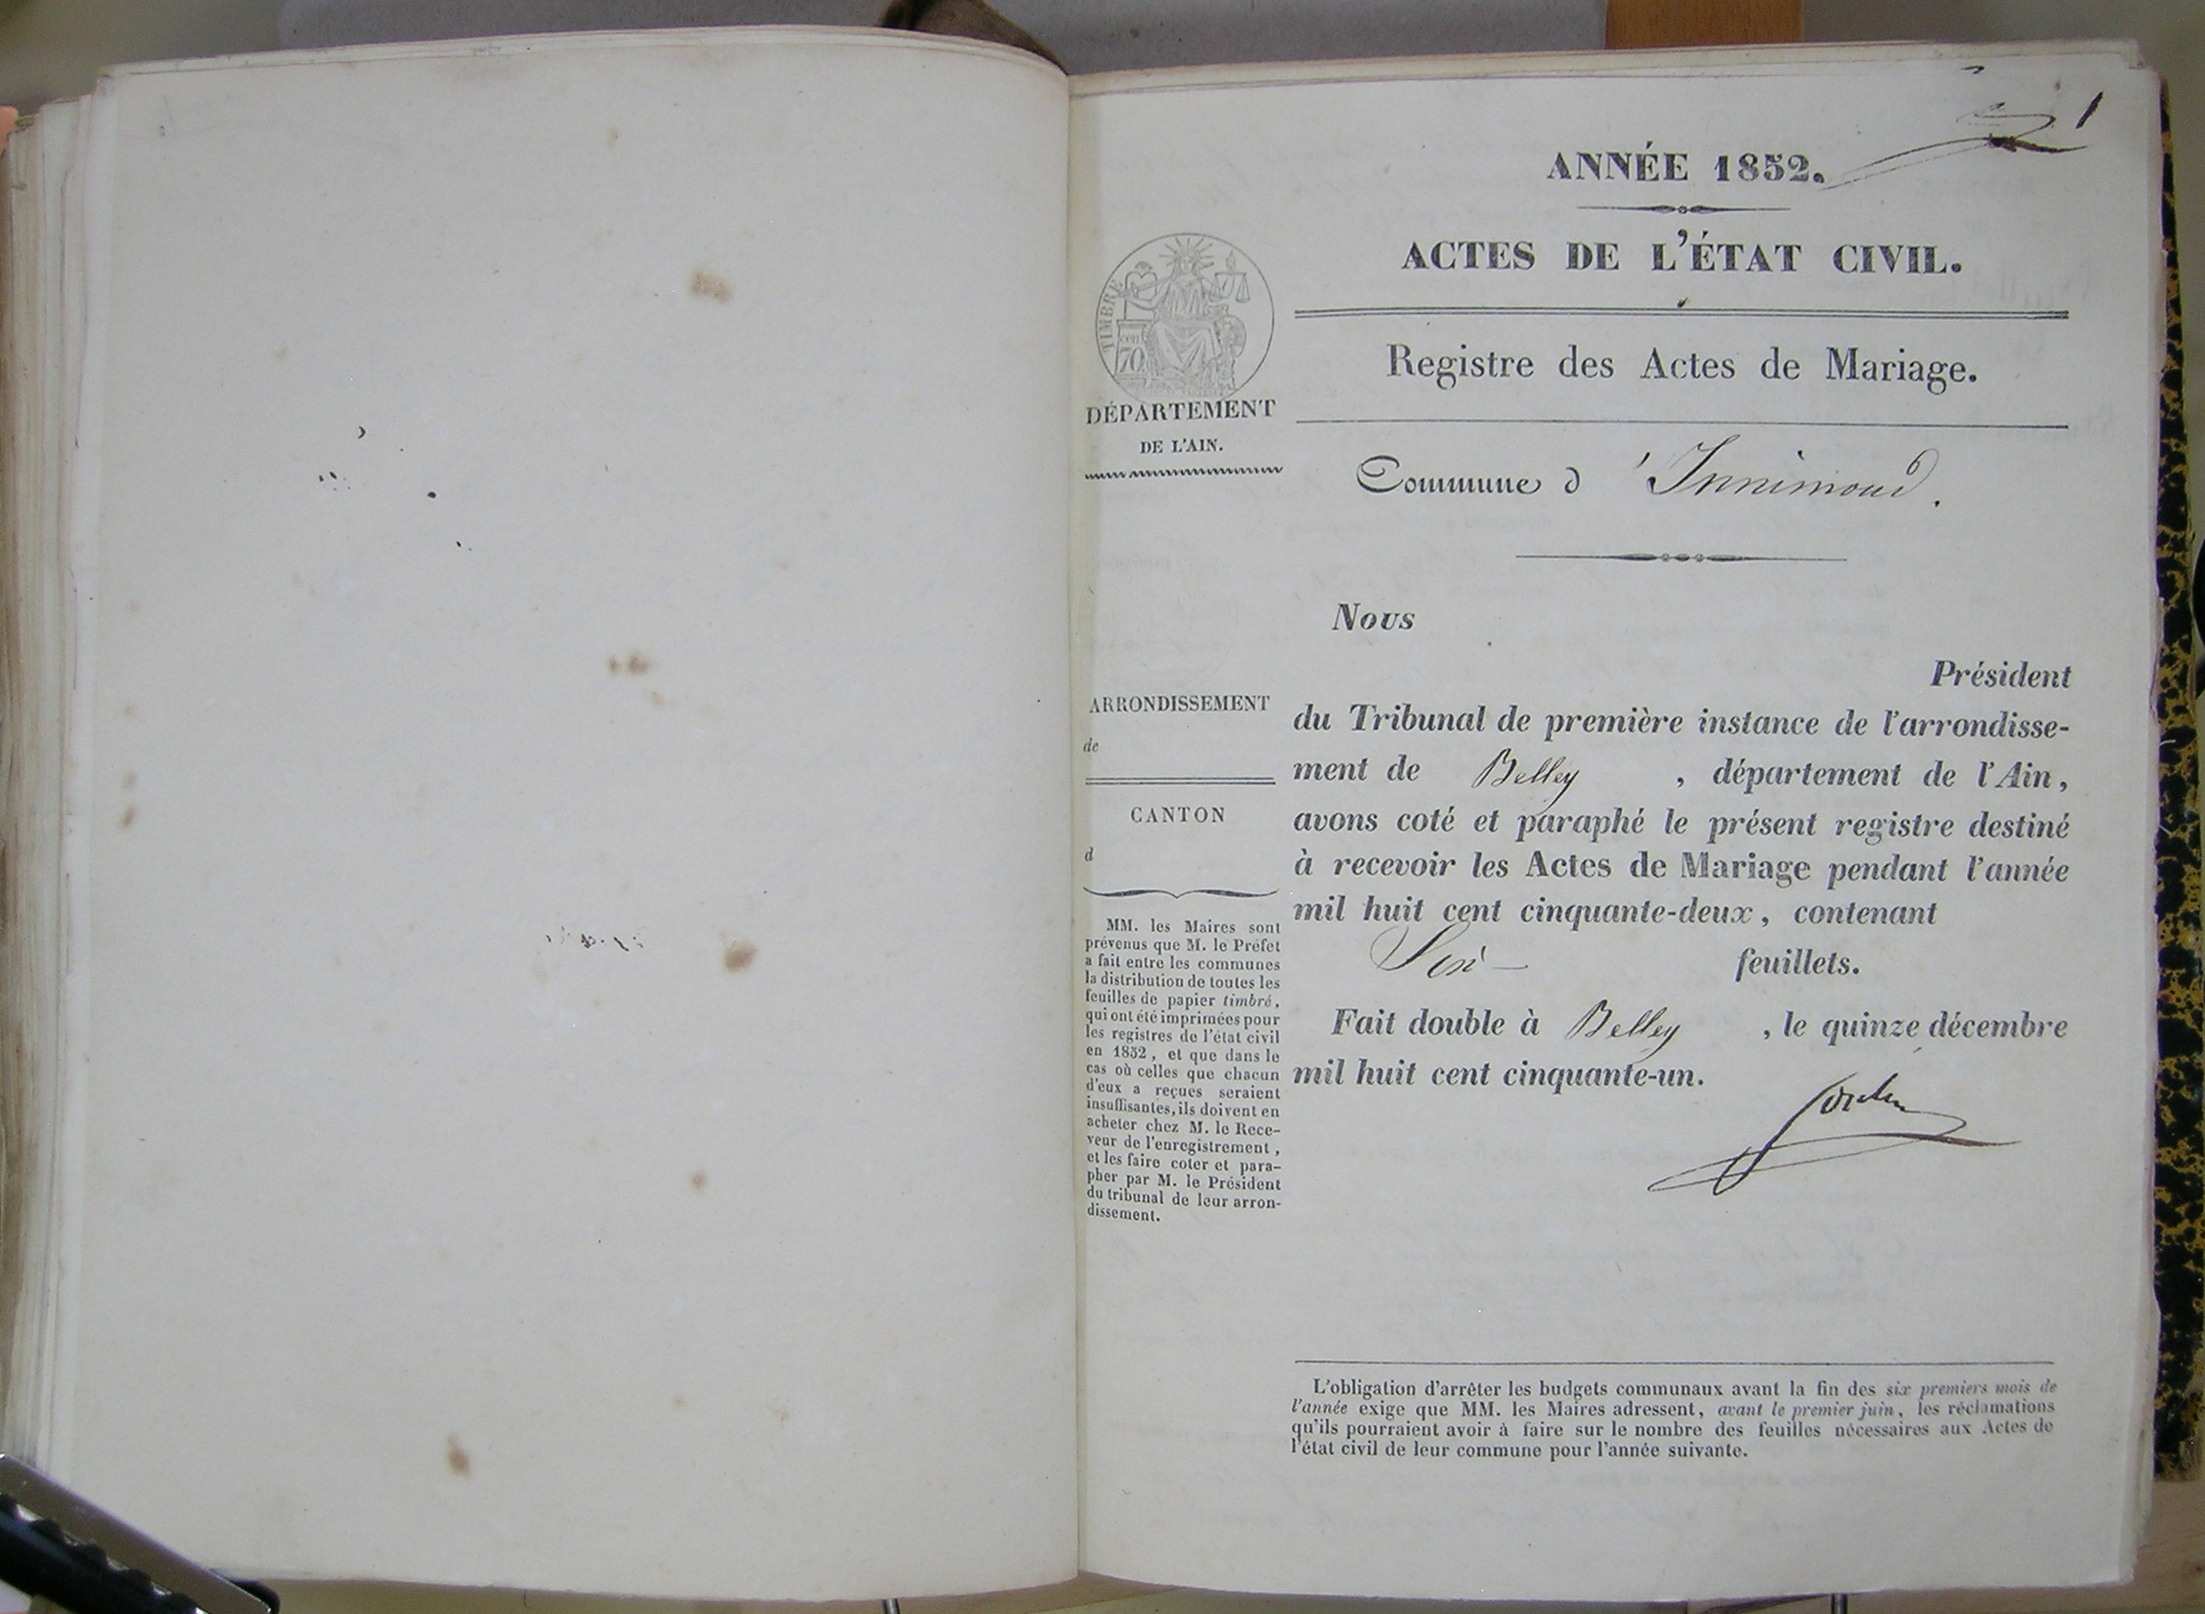 1
ANNÉE 1852.
ACTES DE L'ÉTAT CIVIL.
Registre des Actes de Mariage.
TIMBRE
70
DÉPARTEMENT
DE L'AIN.
Commune d'Innimond.
Nous
Président
du Tribunal de première instance de l'arrondisse-
ment de Belley, département de l'Ain,
avons coté et paraphé le présent registre destiné
à recevoir les Actes de Mariage pendant l'année
mil huit cent cinquante-deux, contenant
feuillets.
Fait double à Belley, le quinze décembre
mil huit cent cinquante-un.
ARRONDISSEMENT
de
CANTON
d
MM. les Maires sont
prévenus que M. le Préfet
a fait entre les communes
la distribution de toutes les
feuilles de papier timbré,
qui ont été imprimées pour
les registres de l'état civil
en 1852, et que dans le
cas où celles que chacun
d'eux a reçues seraient
insuffisantes, ils doivent en
acheter chez M. le Rece-
veur de l'enregistrement,
et les faire coter et para-
pher par M. le Président
du tribunal de leur arron-
dissement.
L'obligation d'arrêter les budgets communaux avant la fin des six premiers mois de
l'année exige que MM. les Maires adressent, avant le premier juin, les réclamations
qu'ils pourraient avoir à faire sur le nombre des feuilles nécessaires aux Actes de
l'état civil de leur commune pour l'année suivante.